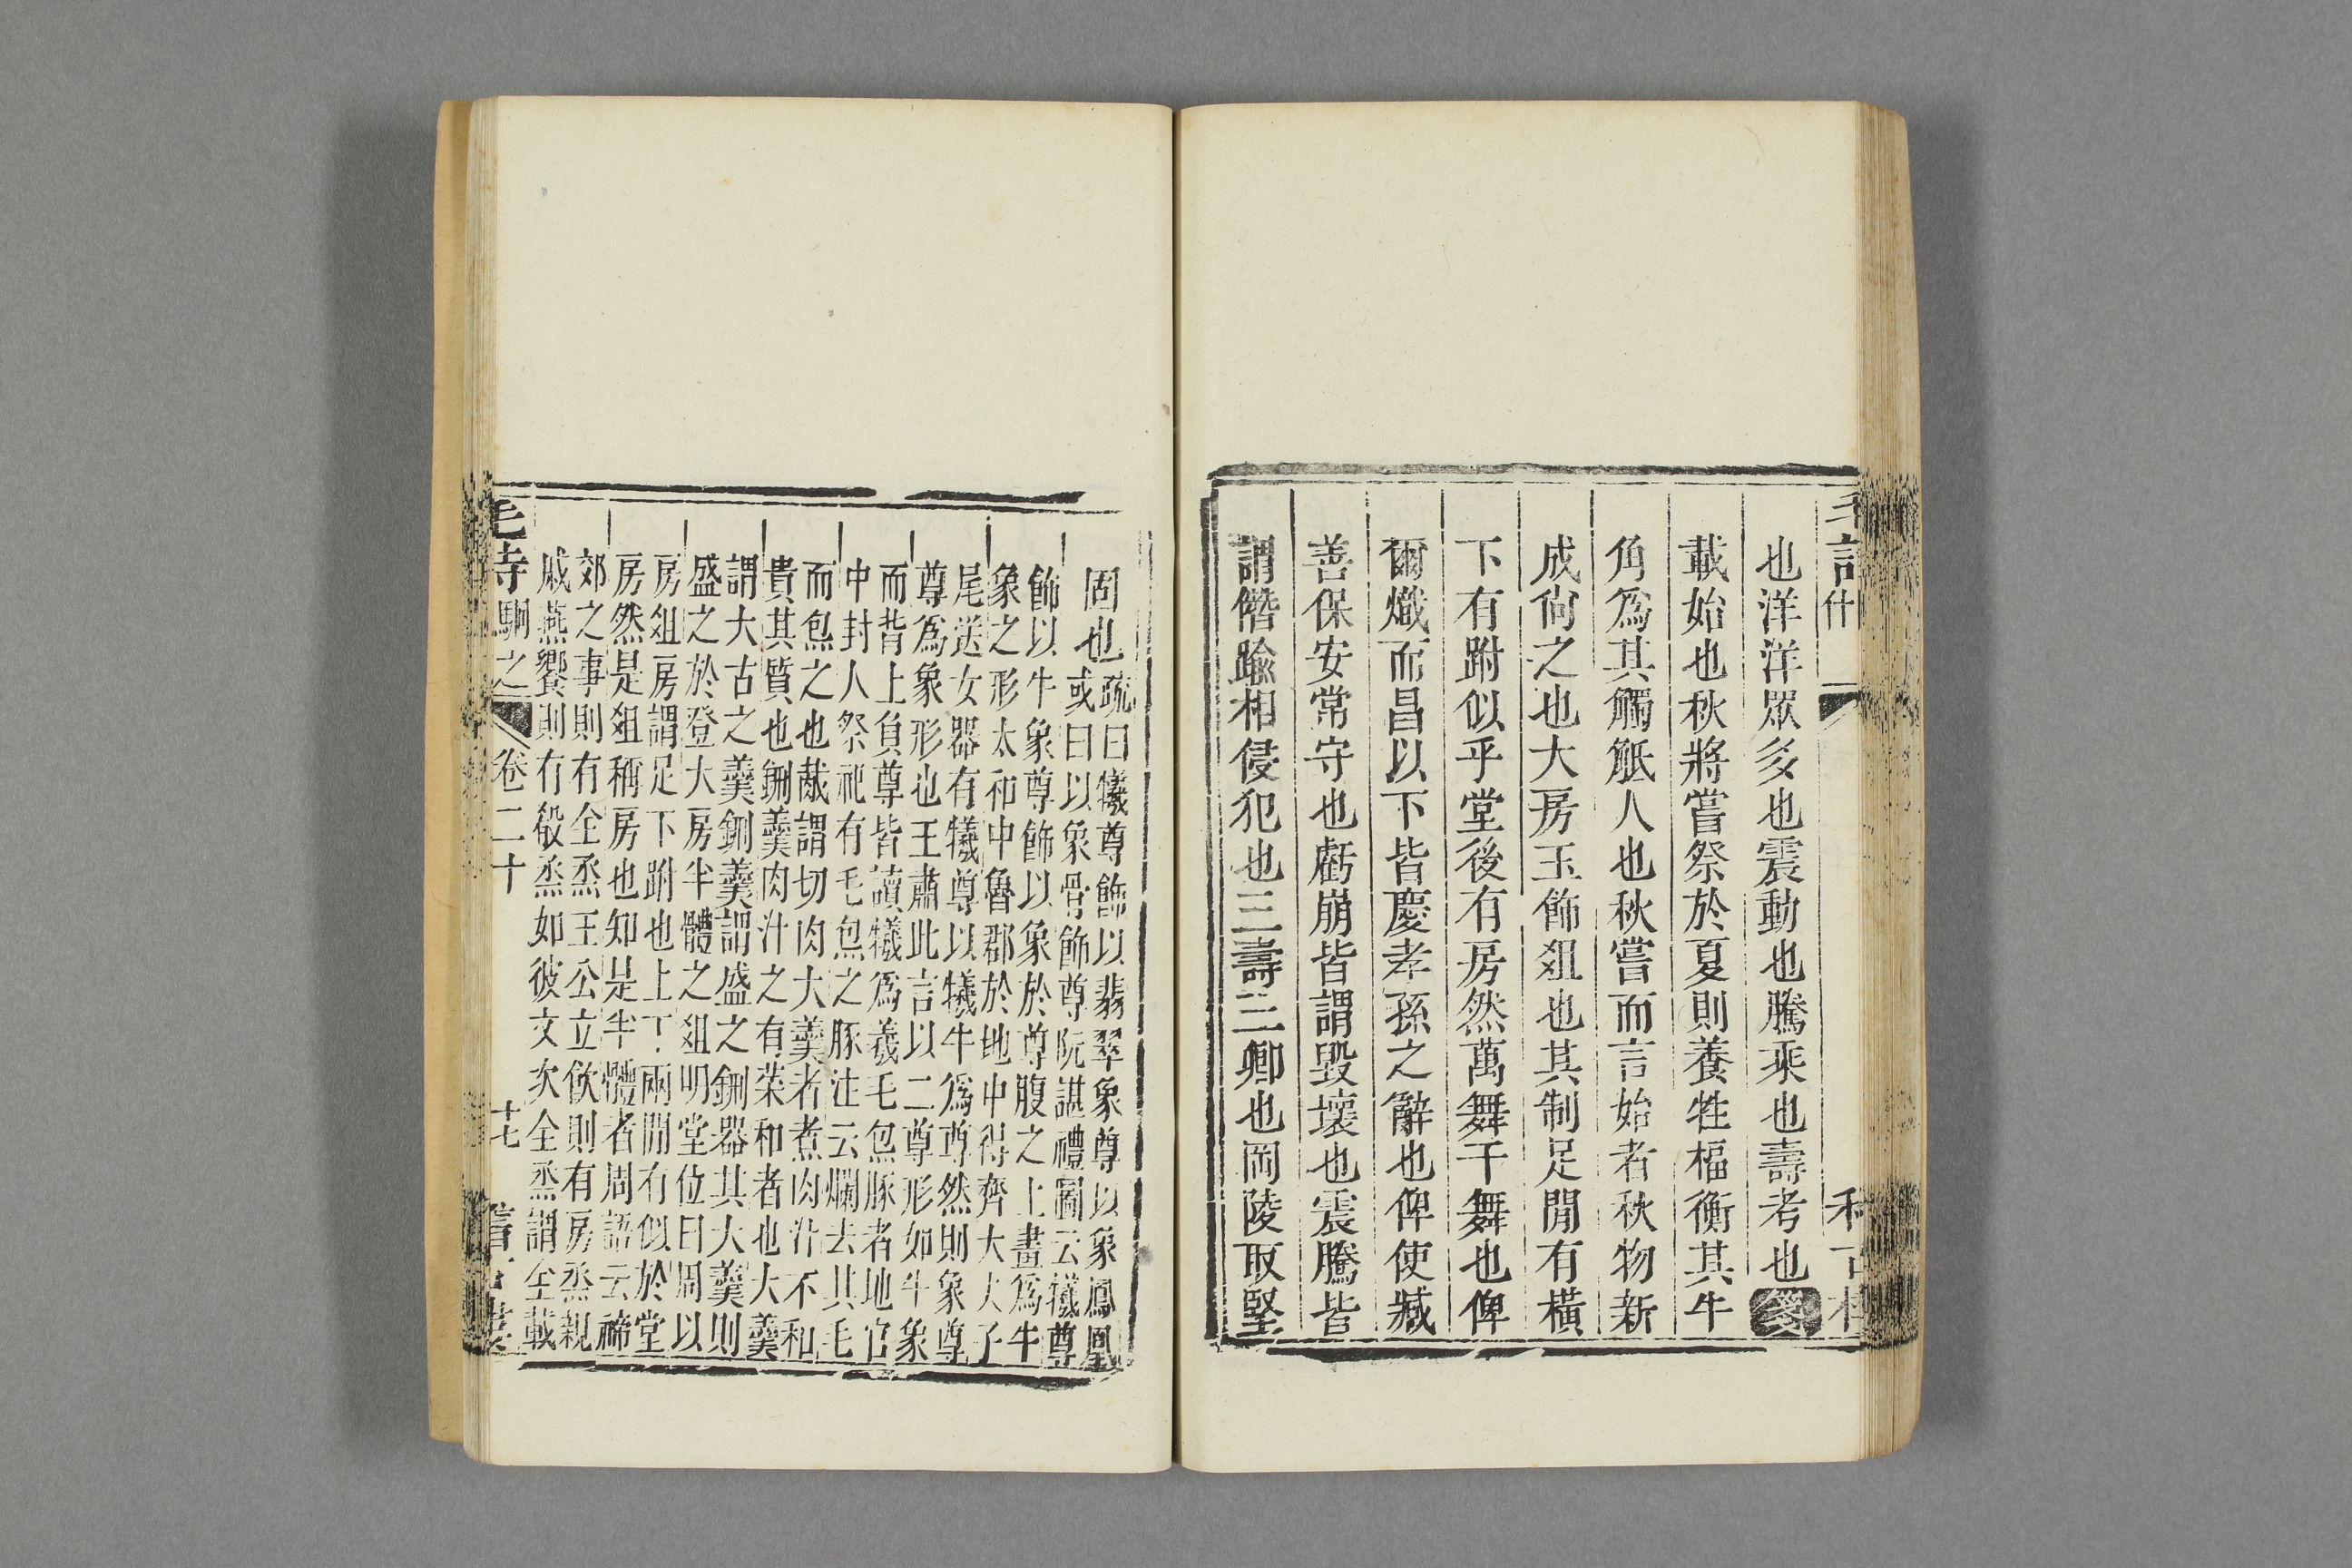 也洋洋眾多也震動也騰乘也壽考也箋
載始也秋將嘗祭於夏則養牲楅衡其牛
角爲其觸觝人也秋嘗而言始者秋物新
成尙之也大房玉飾俎也其制足閒有橫
下有跗似乎堂後有房然萬舞干舞也俾
爾熾而昌以下皆慶孝孫之辭也俾使臧
善保安常守也虧崩皆謂毀壞也震騰皆
謂僭踰相侵犯也三壽三卿也岡陵取堅
固也
疏曰犧尊飾以翡翠象尊以象鳳凰
或曰以象骨飾尊阮諶禮圖云犧尊
飾以牛象尊飾以象於尊腹之上畫爲牛
象之形太和中魯郡於地中得齊大夫子
尾送女器有犧尊以犧牛爲尊然則象尊
尊爲象形也王肅此言以二尊形如牛象
而背上負尊皆讀犧爲羲毛炰豚者地官
中封人祭祀有毛炰之豚注云爓去其毛
而炰之也胾謂切肉大羹者煮肉汁不和
貴其質也鉶羹肉汁之有菜和者也大羹
謂大古之羹鉶羹謂盛之鉶器其大羹則
盛之於登大房半體之俎明堂位曰周以
房俎房謂足下跗也上下兩閒有似於堂
房然是俎稱房也知是半體者周語云禘
郊之事則有全烝王公立飫則有房烝親
戚燕饗則有殽烝如彼文次全烝謂全載
駉之 卷二十 十七